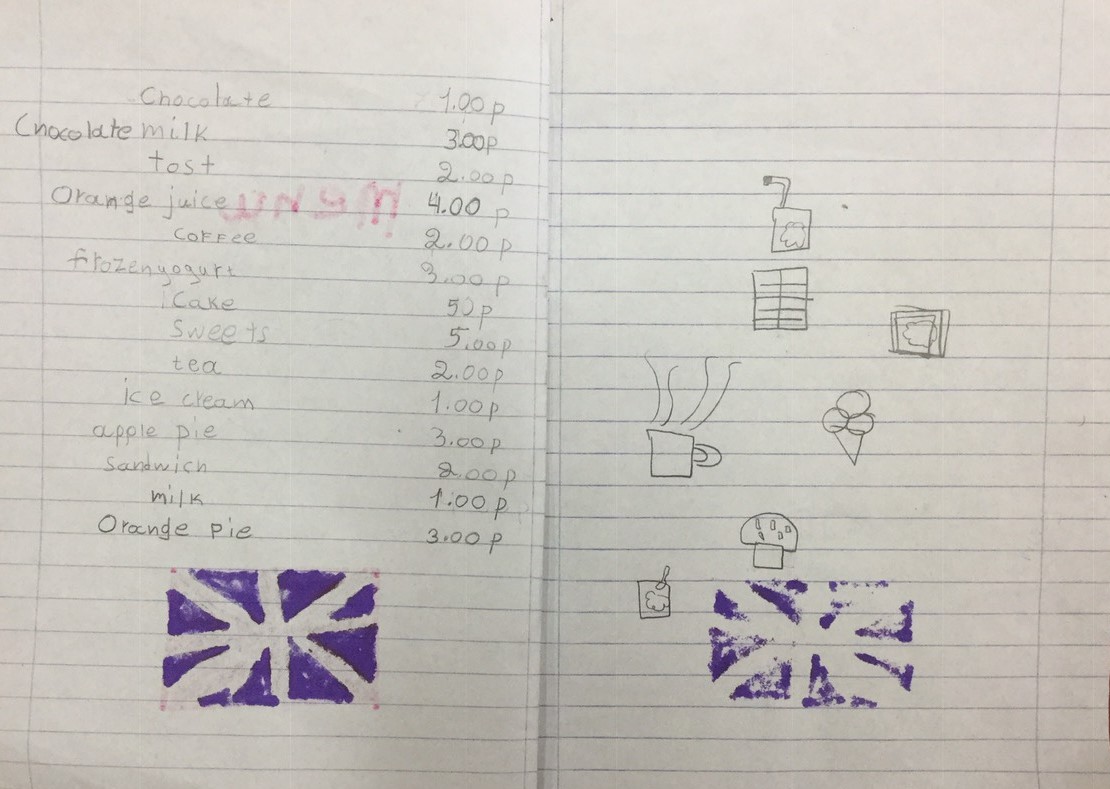 Chocolate 1.00p
Chocolate milk 3.00p
tost 2.00p
Orange juice 4.00 p
coffee 2.00p
frozen yogurt 3.00p
Cake 50p
Sweets 5.00p
tea 2.00p
ice cream 1.00p
apple pie 3.00p
Sandwich 2.00p
milk 1.00p
Orange pie 3.00p